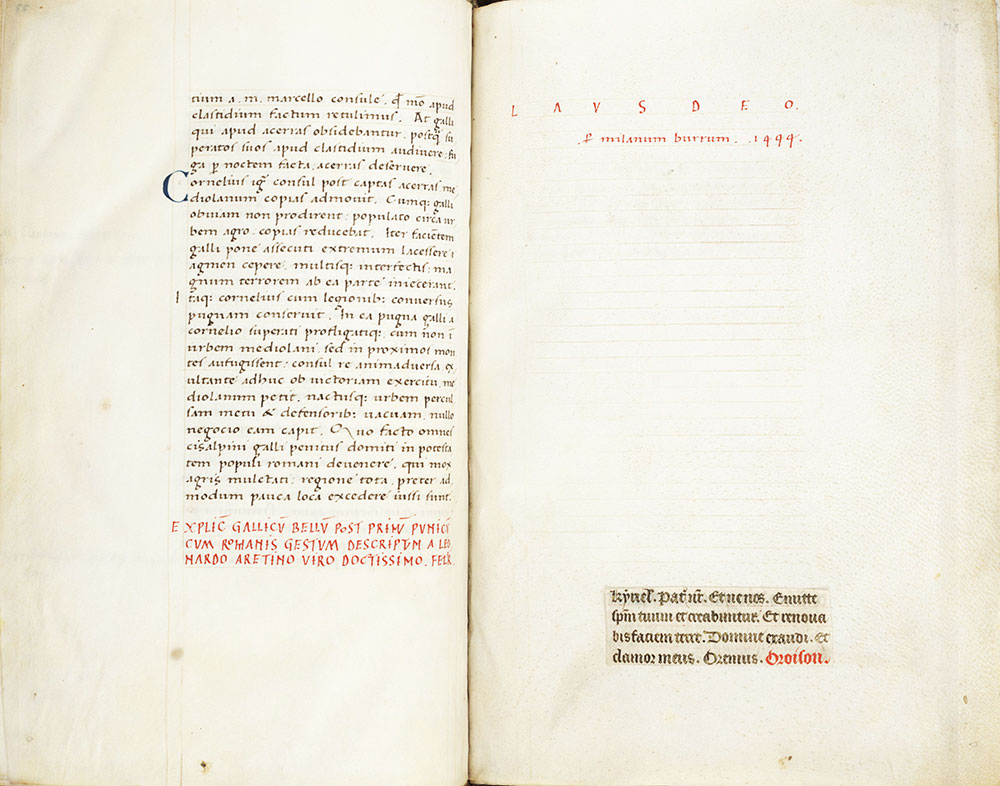 tium a. m. marcello consule. qͥ mō apud
clastidium factum retulimus. At galli
qui apud acerras obsidebantur, postq̃ su
peratos suos apud clastidium audiuere, fu
ga ꝑ noctem facta, acerras deseruere.
Cornelius igr̃ consul post captas acerras me
diolanum copias admouit. Cumq; galli
obuiam non prodirent: populato circa ur
bem agro: copias reducebat. Iter facientem
galli pone assecuti extremum lacessere
agmen cepere, multisq; interfectis: ma
gnum terrorem ab ea parte iniecerant.
Itaq; cornelius cum legionib; conuersus
pugnam conseruit. In ea pugna galli a
cornelio superati profligatiq;, cum non ī
urbem mediolani, sed in proximos mon
tes aufugissent: consul re animaduersa ex
ultante adhuc ob uictoriam exercitu, me
diolanum petit, nactusq; urbem percul
sam metu & defensorib; uacuam, nullo
negocio eam capit. Quo facto omnes
cisalpini galli penitus domiti in potesta
tem populi romani deuenere, qui mox
agris mulctati: regione tota, preter ad
modum pauca loca excedere iussi sunt.
EXPLIC̄ GALLICŪ BELLŪ POST PRIMŪ PUNICŪ
CUM ROMANIS GESTUM DESCRIPTUM A LEO
NARDO ARETINO VIRO DOCTISSIMO. FELR.
LAVS DEO.
.ꝑ milanum burrum. .1494.
kyriel'. Pat' nr̄. Et ne nos. Emitte
spm̄ tuum et creabuntur. Et renoua
bis faciem terre. Domine exaudi. et
clamor meus. Oremus. Oroison.